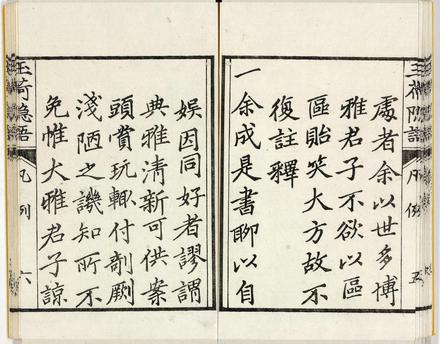 處者余以世多博
雅君子不欲以區
區貽笑大方故不
復註釋
一余成是書聊以自
娛因同好者謬謂
典雅清新可供案
頭賞玩輙付剞劂
淺陋之譏知所不
免惟大雅君子諒
玉荷隱語
凡例
六
凡例
五